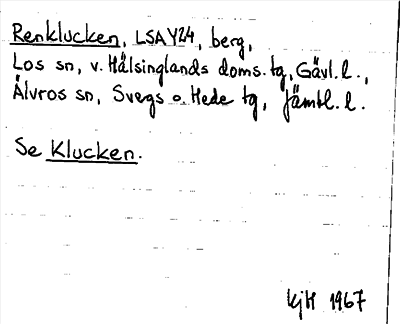 Renklucken, LSAY24, berg,
Los sn, v. Hälsinglands doms. tg, Gävl. l.,
Älvros sn, Svegs o. Hede tg, Jämtl. l.
Se Klucken.
KjH 1967